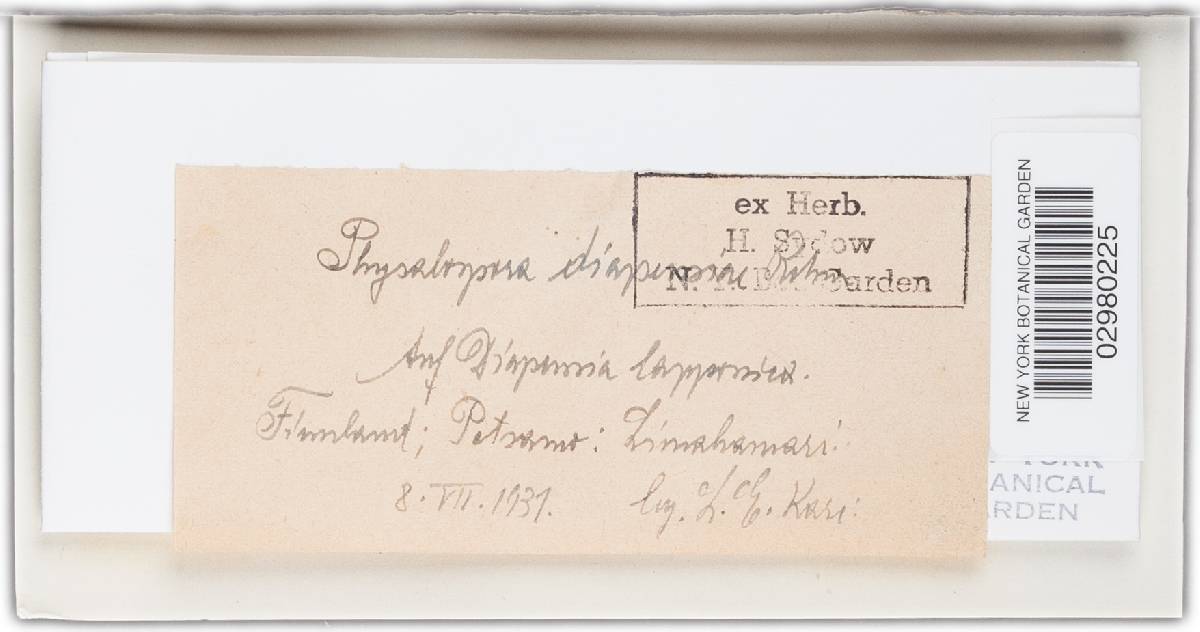 ex Herb.
H. Sydow
N. Y. Bot. Garden
Physalospora diapensiae Rehm.
Auf Diapensia lapponica.
Finnland; Petsamo: Liinahamari.
8. VII. 1931. leg. L. E. Kari.
NEW YORK BOTANICAL GARDEN
02980225
YORK
ANICAL
RDEN